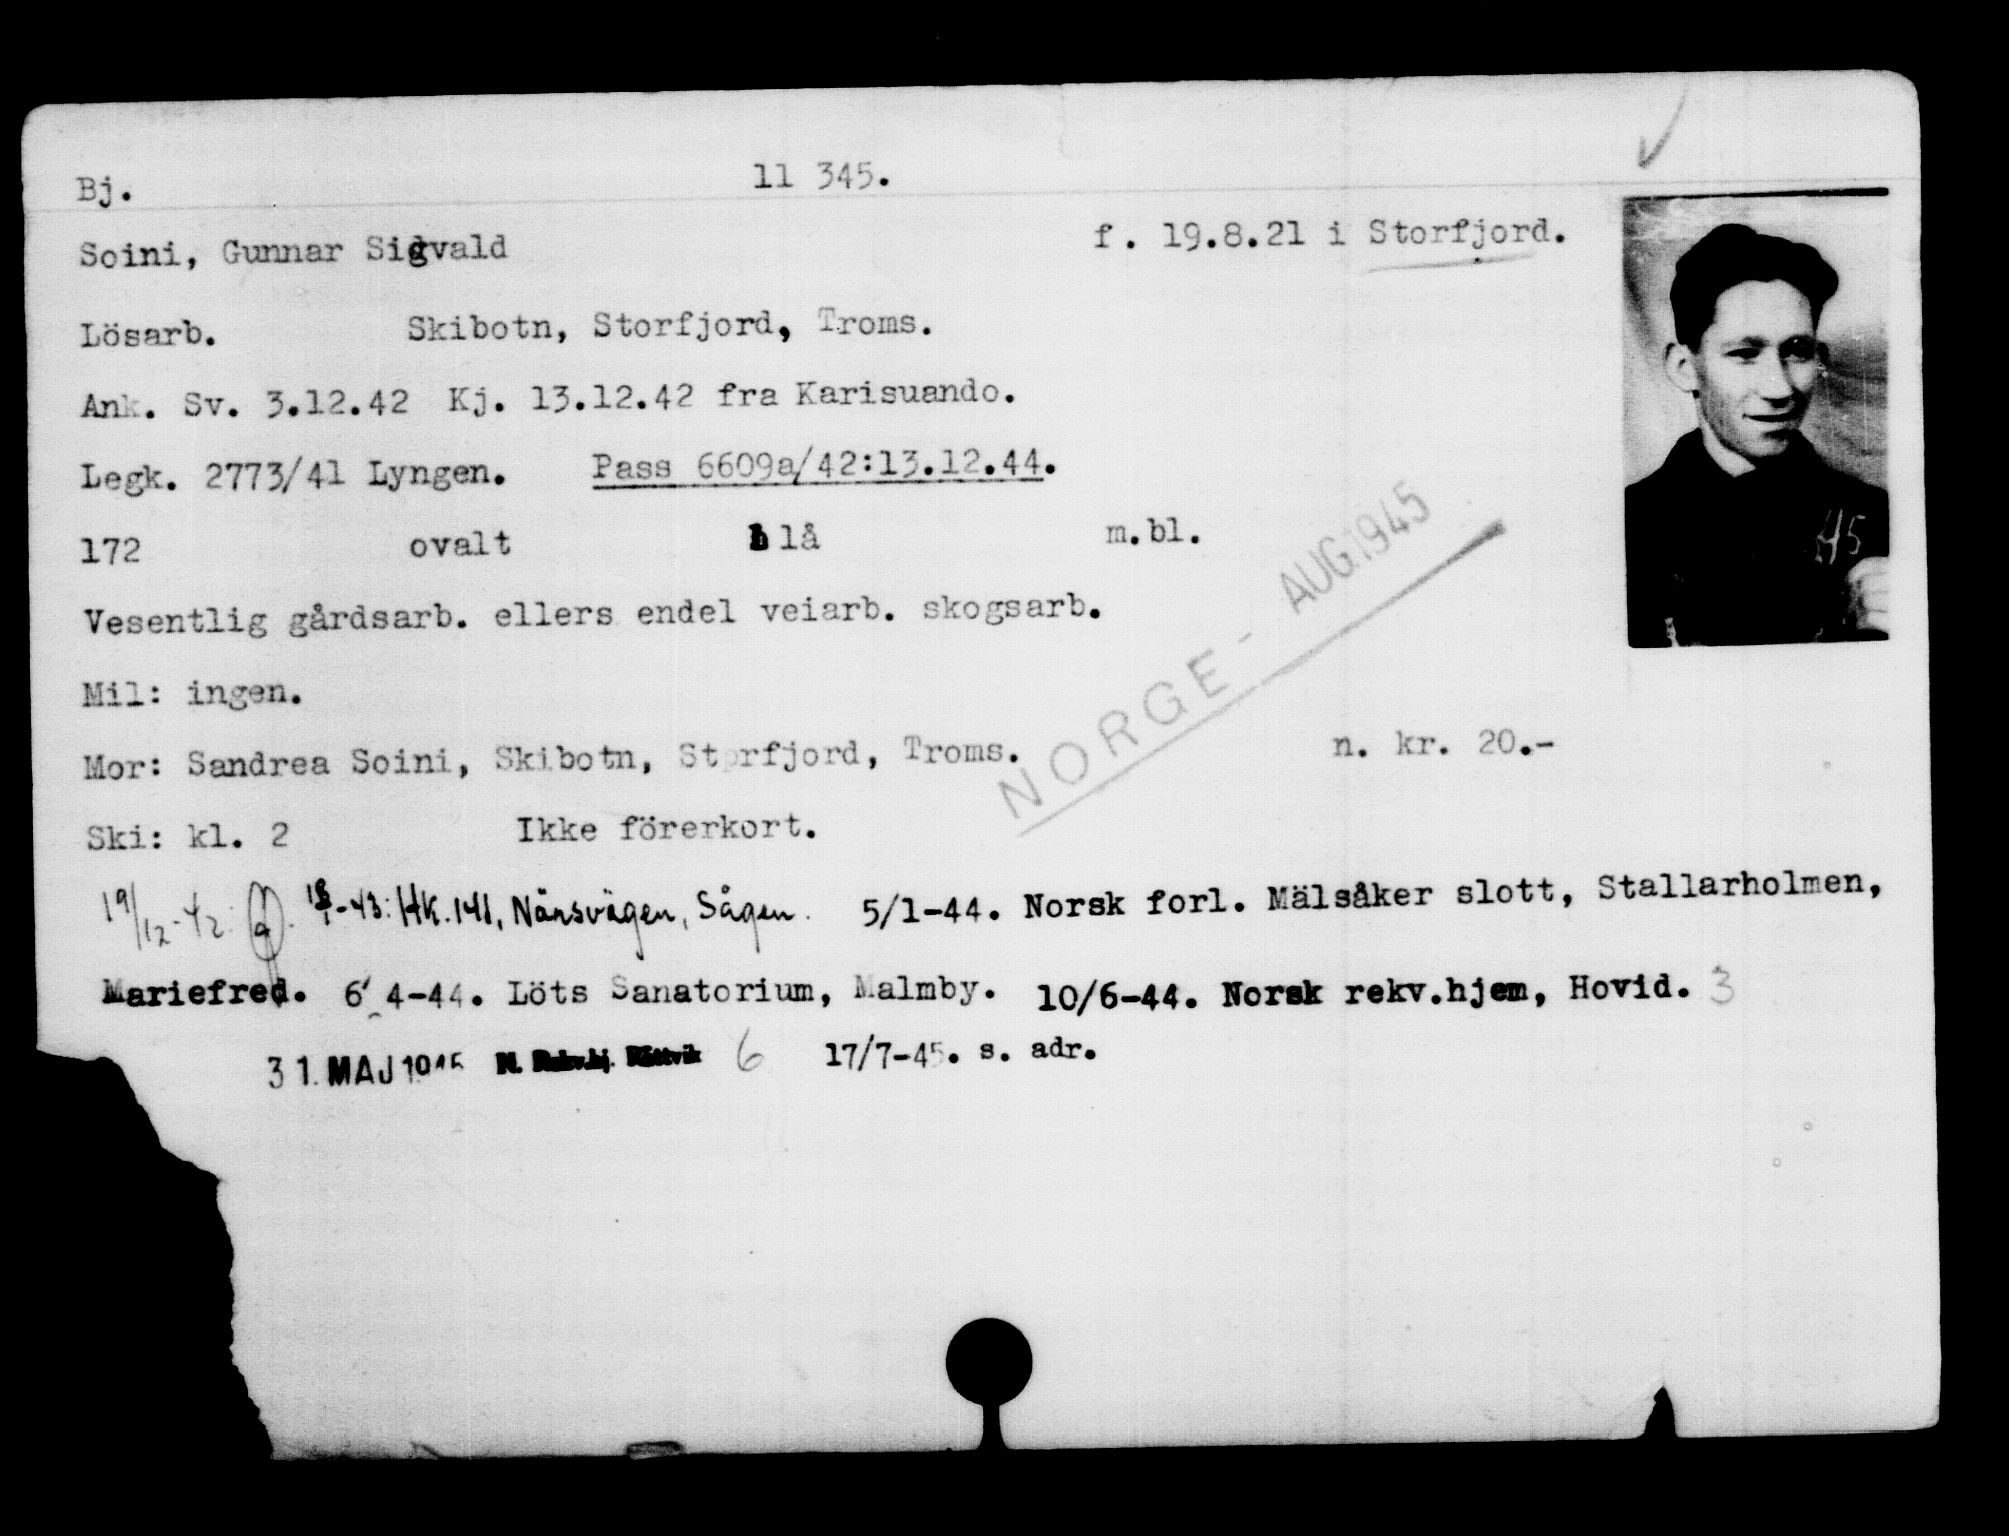 Bj. 11 345.
Soini, Gunnar Sigvald f. 19.8.21 i Storfjord.
Lösarb. Skibotn, Storfjord, Troms.
Ank. Sv. 3.12.42 Kj. 13.12.42 fra Karisuando.
Legk. 2773/41 Lyngen. Pass 6609a/42:13.12.44.
172 ovalt blå m.bl.
Vesentlig gårdsarb. ellers endel veiarb. skogsarb.
Mil: ingen.
NORGE - AUG.1945
Mor: Sandrea Soini, Skibotn, Storfjord, Troms. n. kr. 20.-
Ski: kl. 2 Ikke förerkort.
19/12-42: -43: HK. 141, Närsvägen, Sågen. 5/1-44. Norsk forl. Mälsåker slott, Stallarholmen,
Mariefred. 6/4-44. Löts Sanatorium, Malmby. 10/6-44. Norsk rekv.hjem, Hovid. 3
31. MAJ 1945 N. Rekv.hj. Rättvik 6 17/7-45. s. adr.